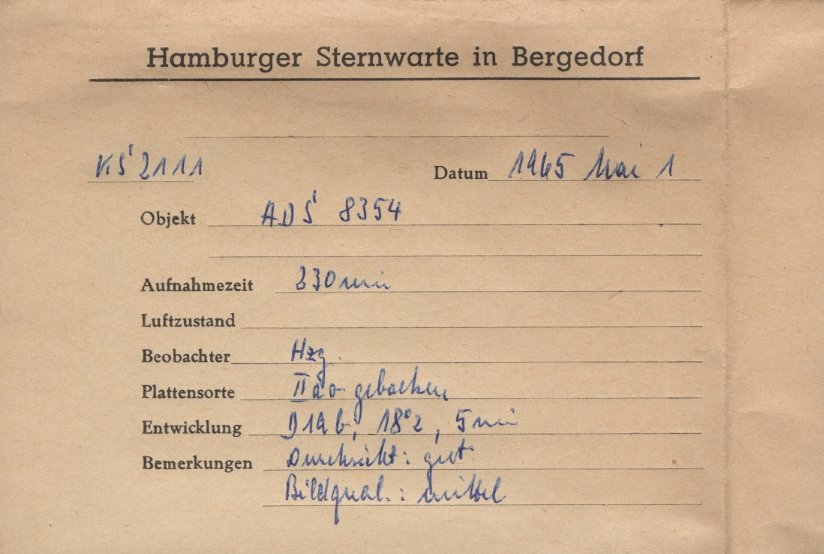 Hamburger Sternwarte in Bergedorf
KS 2111 Datum 1965 Mai 1
Objekt ADS 8354
Aufnahmezeit 230 min
Luftzustand
Beobachter Hzg.
Plattensorte IIao gebacken
Entwicklung D19b, 18°2, 5 min
Bemerkungen Durchsicht: gut
Bildqual.: mittel